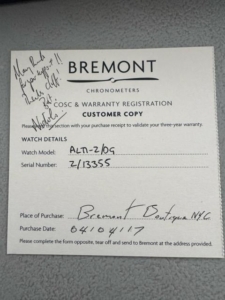 Many thanks
for your support!!
BREMONT
CHRONOMETERS
COSC & WARRANTY REGISTRATION
CUSTOMER COPY
Please keep this section with your purchase receipt to validate your three-year warranty.
WATCH DETAILS
Watch Model: ALT1-Z/DG
Serial Number: 2/13355
Place of Purchase: Bremont Boutique NYC
Purchase Date: 04/04/17
Please complete the form opposite, tear off and send to Bremont at the address provided.